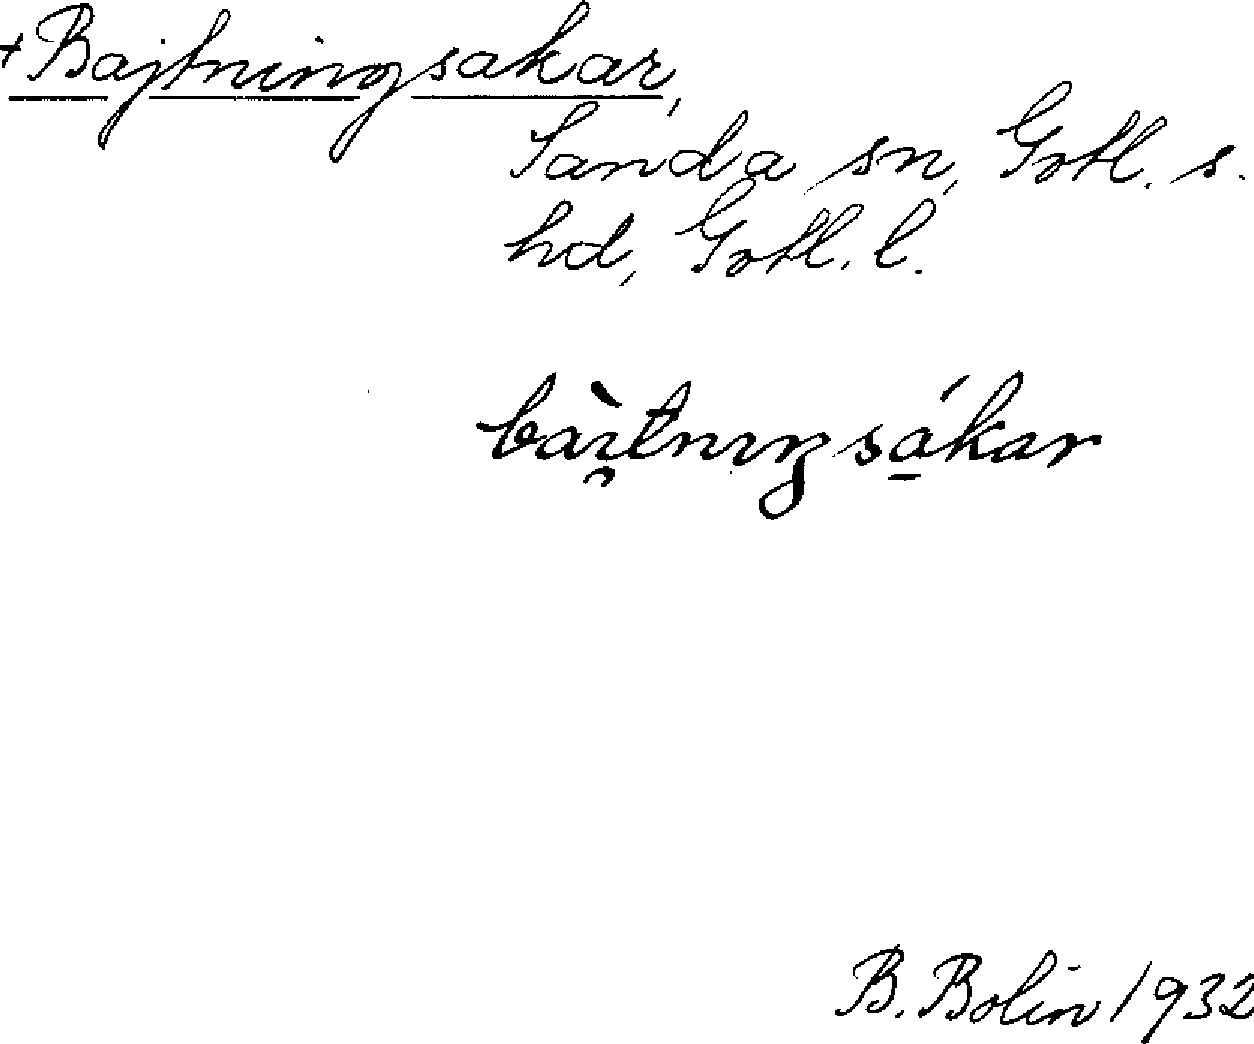 +Bajtningsakar,
Sanda sn, Gotl. s.
hd, Gotl. l.
bài̯tnıŋsá̠kar
B. Bolin 1932